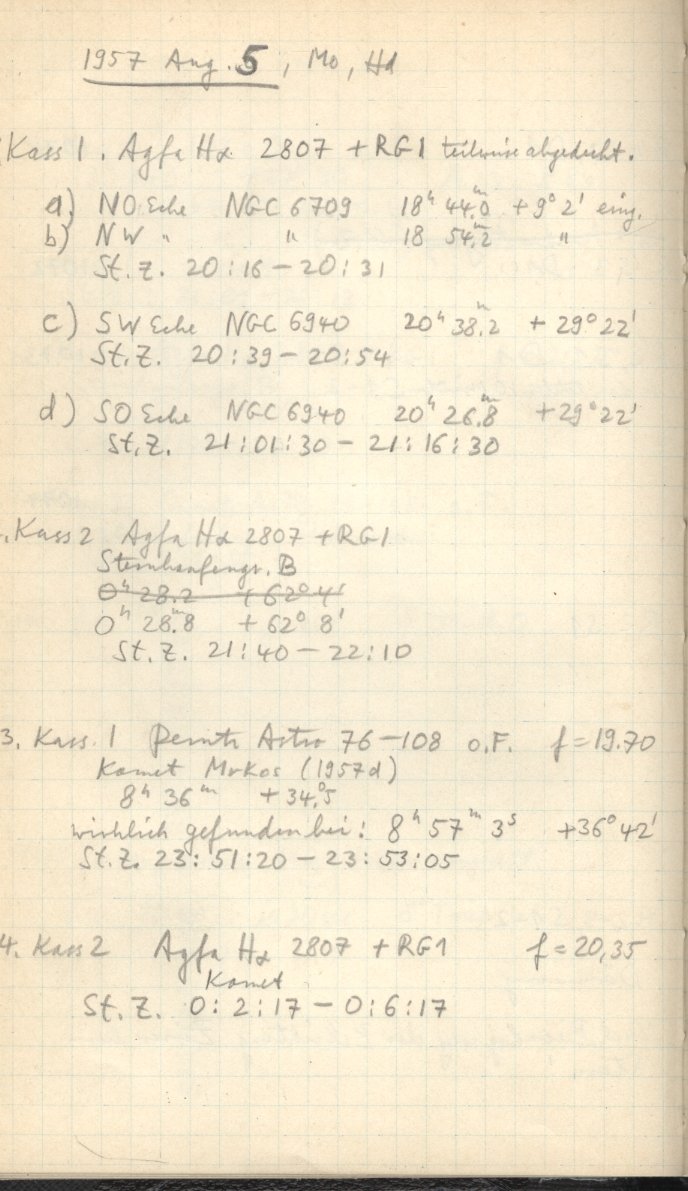 1957 Aug. 5, Mo, Hd
Kass 1. Agfa Hα 2807 + RG1 teilweise abgedeckt.
a) NO Ecke NGC 6709 18ʰ 44ᵐ.0 +9° 2' eing.
b) NW " " 18 54ᵐ.2 "
St. Z. 20:16 – 20:31
c) SW Ecke NGC 6940 20ʰ 38ᵐ.2 + 29° 22'
St. Z. 20:39 – 20:54
d) SO Ecke NGC 6940 20ʰ 26ᵐ.8 +29° 22'
St. Z. 21:01:30 – 21:16:30
. Kass 2 Agfa Hα 2807 + RG1
B
0ʰ 28.2 +62° 4'
0ʰ 28ᵐ.8 + 62° 8'
St. Z. 21:40 – 22:10
3. Kass. 1 Perutz Astro 76–108 o.F. f = 19.70
Komet Mrkos (1957d)
8ʰ 36ᵐ + 34°.5
wirklich gefunden bei: 8ʰ 57ᵐ 3ˢ +36° 42'
St. Z. 23:51:20 – 23:53:05
4. Kass 2 Agfa Hα 2807 + RG1 f = 20,35
Komet
St. Z. 0:2:17 – 0:6:17